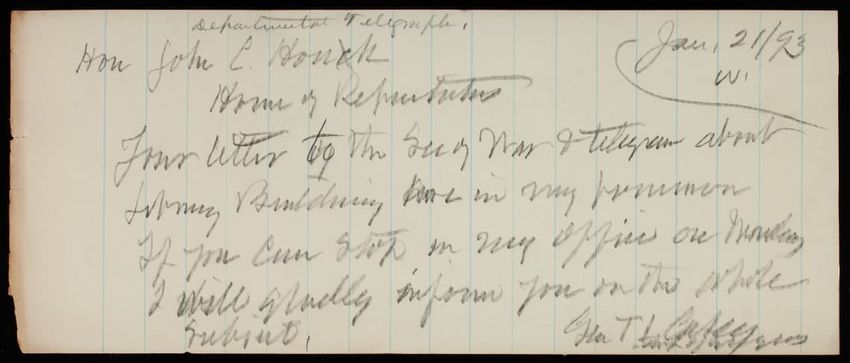 Departmental Telegraph.
Jan, 21/93
W.
Hon John C. Houck
House of Representatives
Your letter to the Sec of War & telegram about
Library Building are in my possession
If you can stop in my office on Monday
I will gladly inform you on the whole
subject.
Geo T L Casey